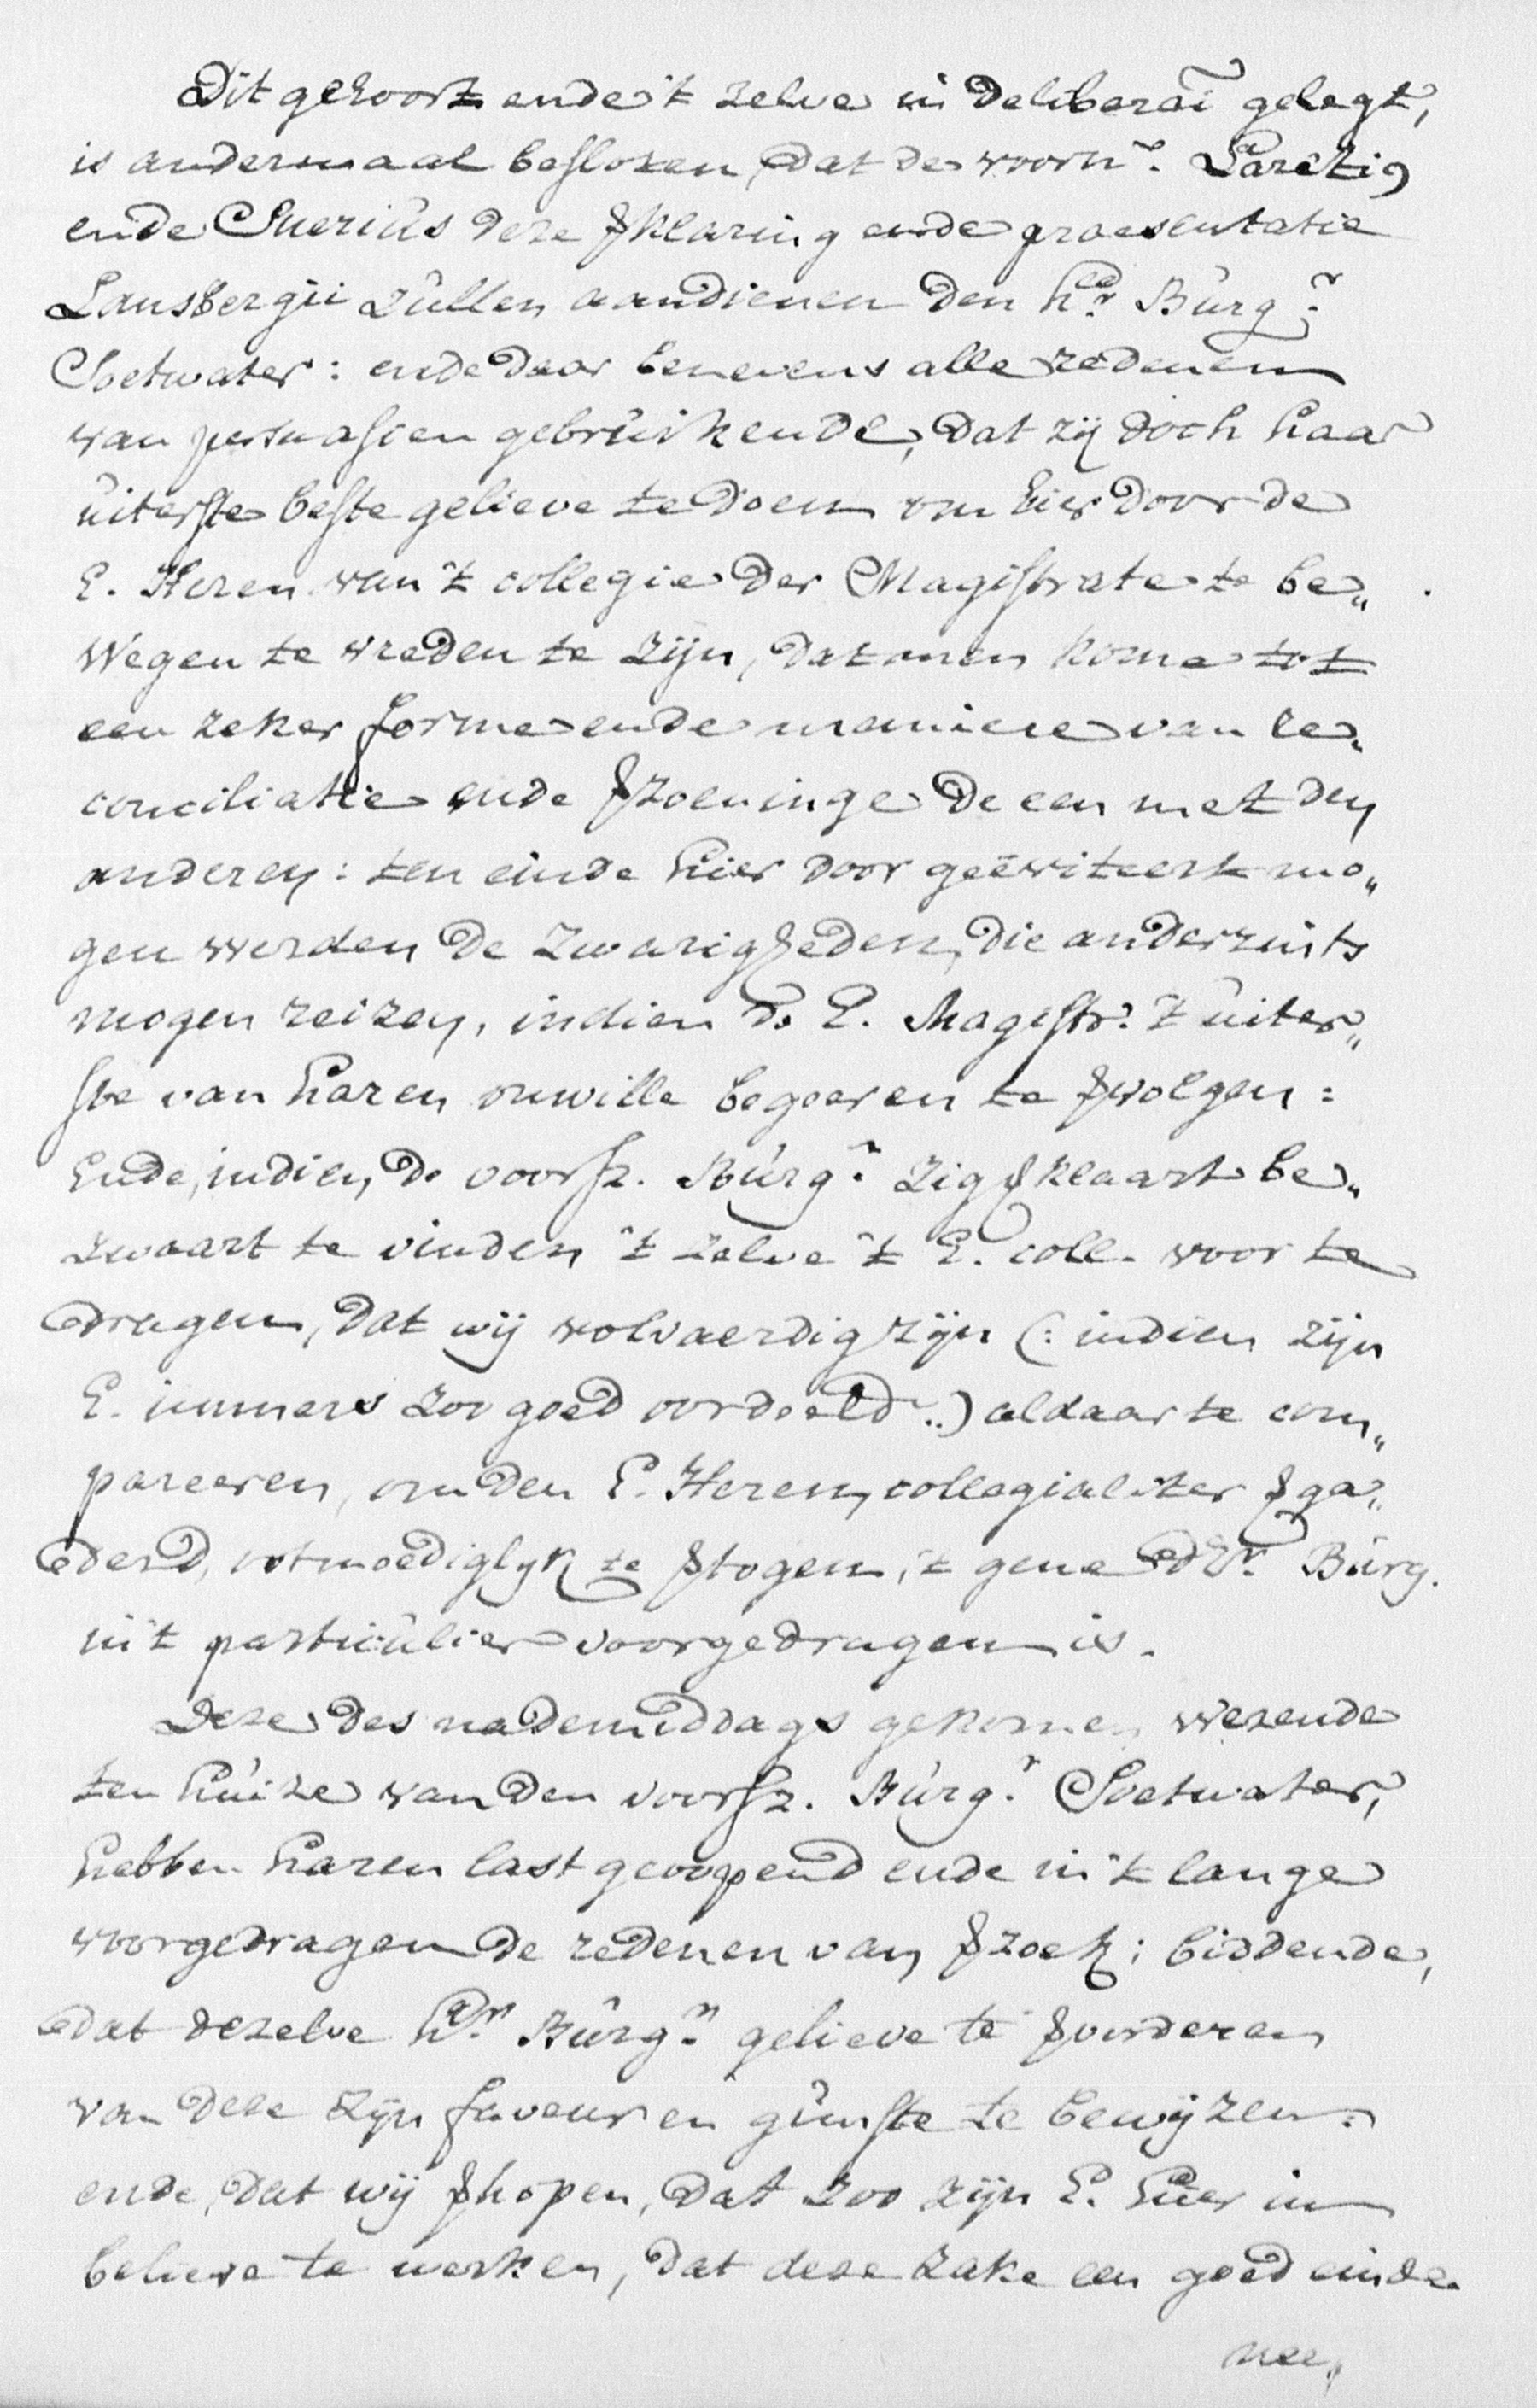 Dit gehoort ende 't zelve in deliberāi gelegt,
is andermaal besloten, dat de voorn.r Larenus
ende Guerius deze vklaring ende praesentatie
Lansbergii zullen aandienen den hr. Burg.r
Soetwater: ende daar benevens alle redenen
van persuasien gebruikende, dat zij doch haar
uiterste beste gelieve te doen om hier door de
E. Heren van 't collegie der Magistrate te be„
wegen te vreden te zijn, dat men kome tot
een zeker forme ende maniere van re„
conciliatie ende vzoeninge de een met den
anderen: ten einde hier door geëviteert mo„
gen werden de zwarigheden, die anderzints
mogen reizen, indien de E. Magistr. 't uiter„
ste van haren onwille begeeren te vvolgen:
Ende, indien de voorsz. Burg.r zig vklaart be„
zwaart te vinden 't zelve 't E. coll. voor te
dragen, dat wij volvaerdig zijn (: indien zijn
E. immers zoo goed oordeeld :) aldaar te com„
pareeren, om den E. Heren, collegialiter vga„
derd, ootmoediglyk te vtogen, 't gene d Hr. Burg.
in 't particulier voorgedragen is.
Deze des nademiddags gekomen wezende
ten huize van den voorsz. Burg.r Soetwater,
hebben haren last geoopend ende in 't lange
voorgedragen de redenen van vzoek; biddende,
dat dezelve hr. Burg.r gelieve te vorderen
van deze zijn faveur en gunste te bewijzen:
ende, dat wij vhopen, dat zoo zijn E. hier in
believe te werken, dat deze zake een goed einde
nee„